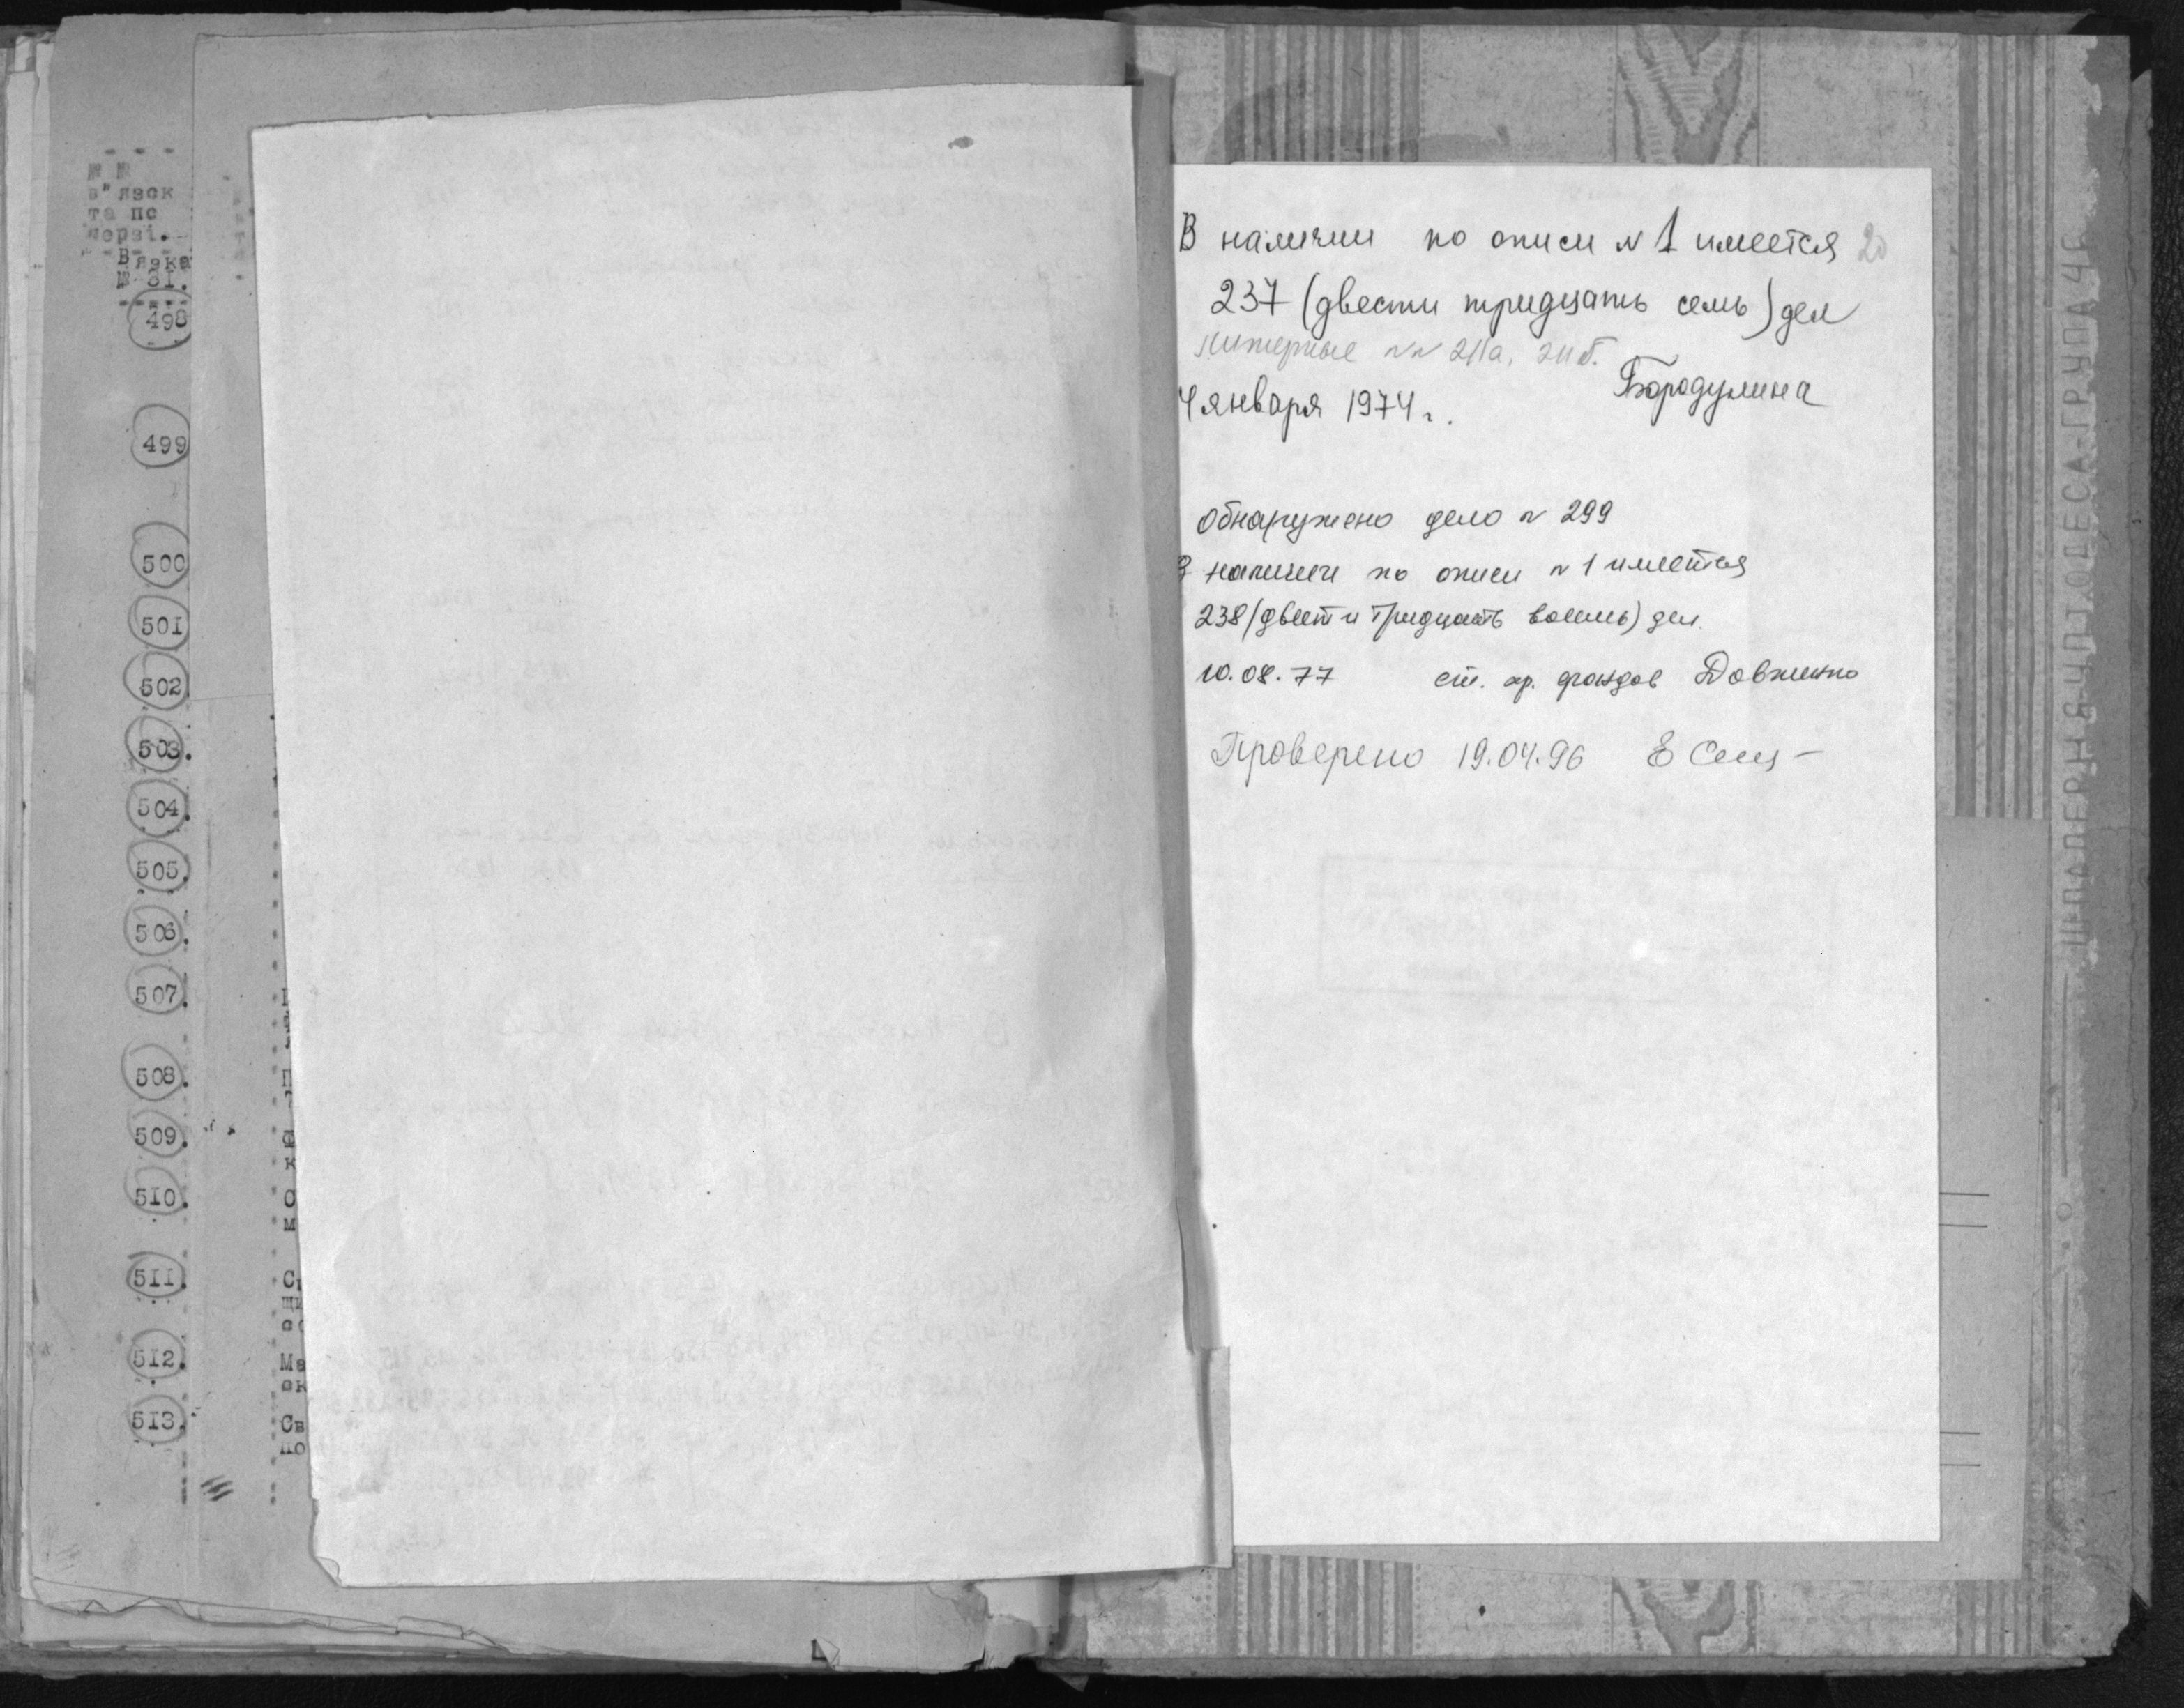 № №
в"язок
та по
черзі.
В'язка
№ 31.
498
499
500
501
502
503.
504.
505.
506.
507.
508.
509.
510.
511.
512.
513.
П
Ф
к
С
м
Ма
ск
Св
по
В наличии по описи № 1 имеется 20
237 (двести тридцать семь) дел
литерные №№ 211а, 211б.
4 января 1974 г. Бородулина
Обнаружено дело № 299
В наличии по описи № 1 имеется
238 (двести тридцать восемь) дел.
10.08.77 ст. хр. фондов Довженко
Проверено 19.04.96 Е
ОДЕСА-ГРУПА 4Б